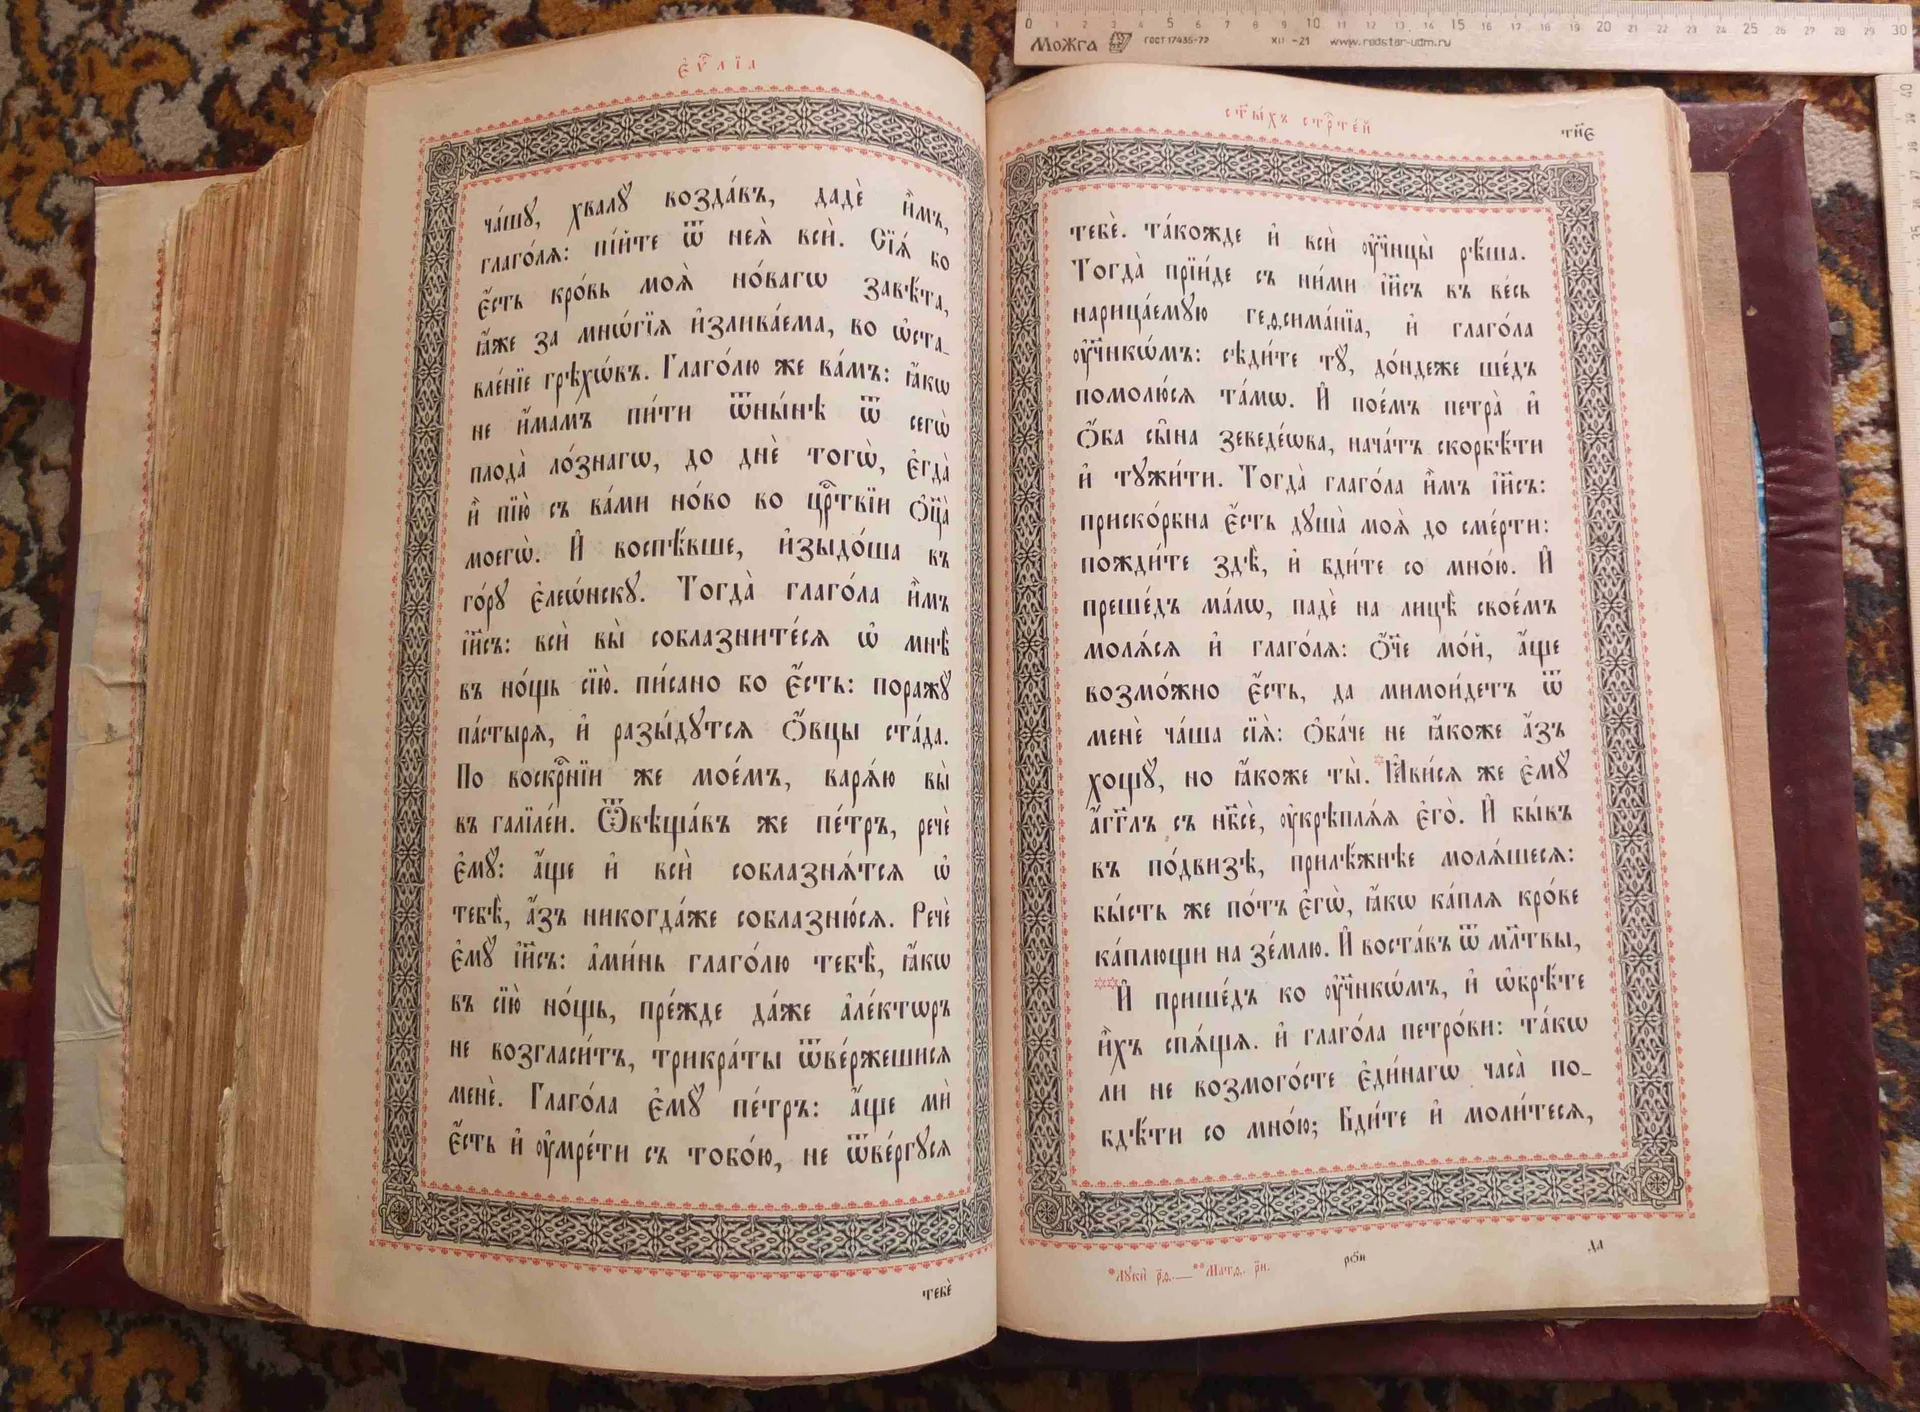 Є҆ѵⷢ҇лїа
ча́шꙋ, хвалꙋ̀ возда́въ, дадѐ и҆̀мъ,
глаго́лѧ: пі́йте ѿ неѧ̀ всѝ. Сїѧ́ бо
є҆́сть кро́вь моѧ̀ но́вагѡ завѣ́та,
ꙗ҆́же за мнѡ́гїѧ и҆злива́ема, во ѡ҆ста_
вле́нїе грѣхѡ́въ. Глаго́лю же ва́мъ: ꙗ҆́кѡ
не и҆́мамъ пи́ти ѿны́нѣ ѿ сегѡ̀
плода̀ ло́знагѡ, до днѐ тогѡ̀, є҆гда̀
и҆̀ пїю̀ съ ва́ми но́во во црⷭ҇твїи ѻ҆ц҃а̀
моегѡ̀. И҆̀ воспѣ́вше, и҆зыдо́ша въ
го́рꙋ є҆леѡ́нскꙋ. Тогда̀ глаго́ла и҆̀мъ
і҆и҃съ: всѝ вы̀ соблазните́сѧ ѡ҆ мнѣ̀
въ но́щь сїю̀. пи́сано бо є҆́сть: поражꙋ̀
па́стырѧ, и҆ разы́дꙋтсѧ ѻ҆́вцы ста́да.
По воскрⷭ҇нїи же мое́мъ, варѧ́ю вы̀
въ галїле́и. Ѿвѣща́въ же пе́тръ, речѐ
є҆мꙋ̀: а҆́ще и҆ всѝ соблазнѧ́тсѧ ѡ҆
тебѣ̀, а҆́зъ никогда́же соблазню́сѧ. Речѐ
є҆мꙋ̀ і҆и҃съ: а҆ми́нь глаго́лю тебѣ̀, ꙗ҆́кѡ
въ сїю̀ но́щь, пре́жде да́же а҆ле́ктѡръ
не возгласи́тъ, трикра́ты ѿве́ржешисѧ
менѐ. Глаго́ла є҆мꙋ̀ пе́тръ: а҆́ще мѝ
є҆́сть и҆ ᲂу҆мре́ти съ тобо́ю, не ѿве́ргꙋсѧ
тебѐ
ст҃ы́хъ стрⷭ҇те́й
тн҃є
тебѐ. та́кожде и҆ всѝ ᲂу҆ч҃нцы̀ рѣ́ша.
Тогда̀ прїи́де съ ни́ми і҆и҃съ въ ве́сь
нарица́емꙋю геѳсима́нїа, и҆ глаго́ла
ᲂу҆ч҃нкѡ́мъ: сѣди́те тꙋ̀, до́ндеже ше́дъ
помолю́сѧ та́мѡ. И҆̀ пое́мъ петра̀ и҆
ѻ҆́ба сы҃на зеведе́ѡва, нача́тъ скорбѣ́ти
и҆ тꙋжи́ти. Тогда̀ глаго́ла и҆̀мъ і҆и҃съ:
приско́рбна є҆́сть дꙋша̀ моѧ̀ до сме́рти:
пожди́те здѣ̀, и҆ бди́те со мно́ю. И҆̀
преше́дъ ма́лѡ, падѐ на лицѣ̀ свое́мъ
молѧ́сѧ и҆ глаго́лѧ: ѻ҆́ч҃е мо́й, а҆́ще
возмо́жно є҆́сть, да мимои́детъ ѿ
менѐ ча́ша сїѧ̀: ѻ҆ба́че не ꙗ҆́коже а҆́зъ
хощꙋ̀, но ꙗ҆́коже ты̀. *Ꙗ҆ви́сѧ же є҆мꙋ̀
а҆́гг҃лъ съ нб҃сѐ, ᲂу҆крѣплѧ́ѧ є҆го̀. И҆̀ бы́въ
въ по́двизѣ, прилѣ́жнѣе молѧ́шесѧ:
бы́сть же по́тъ є҆гѡ̀, ꙗ҆́кѡ ка́плѧ кро́ве
ка́плющи на зе́млю. И҆̀ воста́въ ѿ мл҃твы,
**И҆̀ прише́дъ ко ᲂу҆ч҃нкѡ́мъ, и҆ ѡ҆брѣ́те
и҆̀хъ спѧ́щѧ. и҆ глаго́ла петро́ви: та́кѡ
ли не возмого́сте є҆ди́нагѡ часа̀ по_
бдѣ́ти со мно́ю; Бди́те и҆ моли́тесѧ,
*Лꙋкѝ р҃ѳ.—**Матѳ. р҃и.
ро҃и
да
Можга ГОСТ 17435-72 XII -21 www.redstar-udm.ru